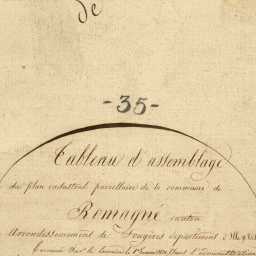 de
-35-
Tableau d'assemblage
du plan cadastral parcellaire de la commune de
Romagné canton
Arrondissement de Fougères département d'Ille &
Terminé sur le terrain le